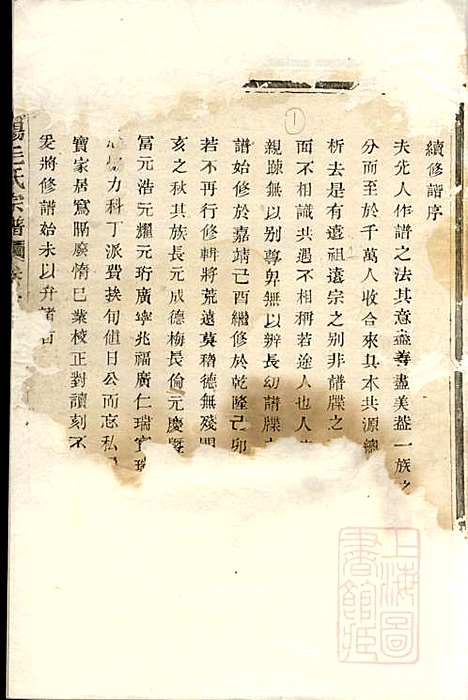 續修譜序
夫先人作譜之法其意益善盡美益一族之
分而至於千萬人收合來具木共源總
析去是有遠祖遠宗之別非譜牒之
面不相識共遇不相稱若途人也人
親踈無以別尊卑無以辨長幼譜牒
譜始修於嘉靖己酉繼修於乾隆己卯
若不再行修輯將荒遠莫稽德無殘
亥之秋其族長元成德梅長倫元慶
冨元浩元耀元珩廣寧兆福廣仁瑞寳瑞
力科丁派費挨旬值日公而忘私
寶家居寫賬廢惰巳業校正對讀刻不
爰將修譜始末以弁諸首
王氏宗譜
1
上海圖書館臧